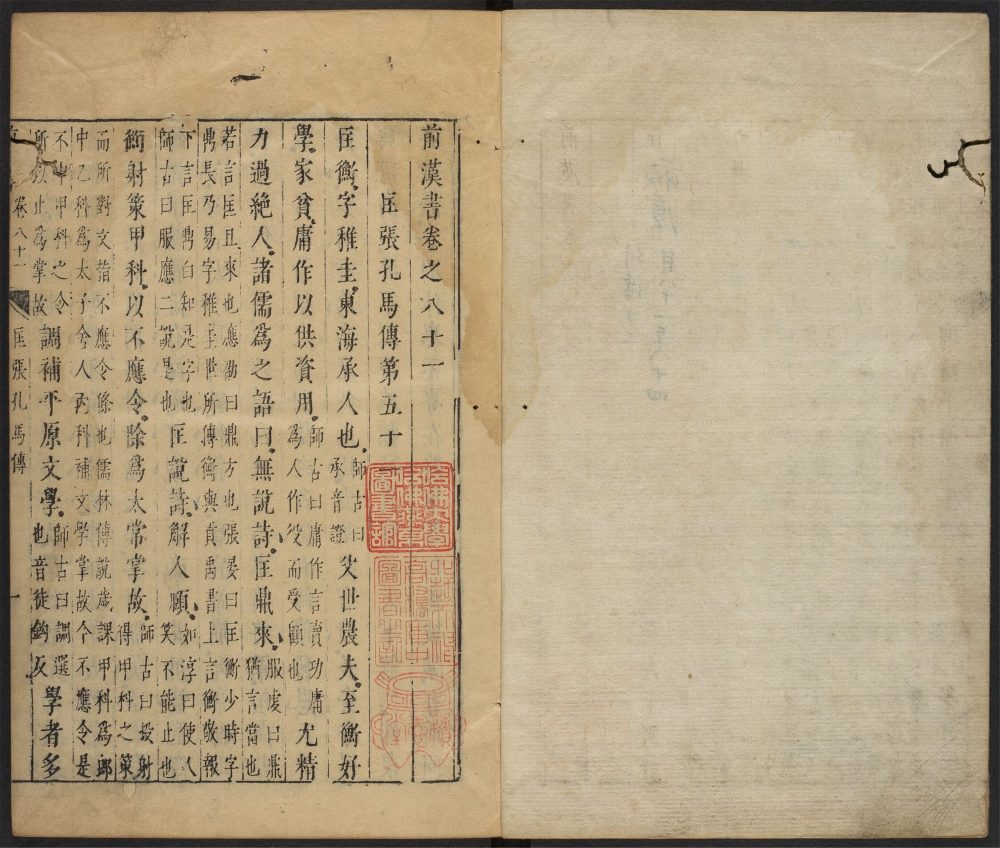 前漢書卷之八十一
匡張孔馬傳第五十一
匡衡字稚圭東海承人也師古曰承音證父世農夫至衡好
學家貧庸作以供資用師古曰庸作言賣功庸爲人作役而受顧也尤精
力過絶人諸儒爲之語曰無說詩匡鼎來服虔曰鼎猶言當也
若言匡且來也應劭曰鼎方也張晏曰匡衡少時字
鼎長乃易字稚圭世所傳衡與貢禹書上言衡敬報
下言匡鼎白知是字也師古曰服應二說是也匡說詩解人頤如淳曰使人笑不能止也
衡射策甲科以不應令除爲太常掌故師古曰投射得甲科之策
而所對文指不應令條也儒林傳說歲課甲科爲郎
中乙科爲太子舍人丙科補文學掌故今不應令是
不中甲科之令所以止爲掌故調補平原文學師古曰調選也音徒釣反學者多
卷八十一 匡張孔馬傳 一
哈佛大學哈佛燕京圖書館